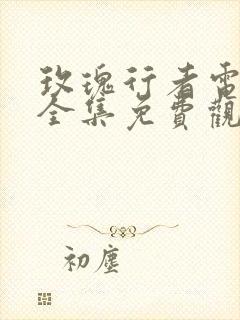 玫瑰行者電
全集免費觀
初塵